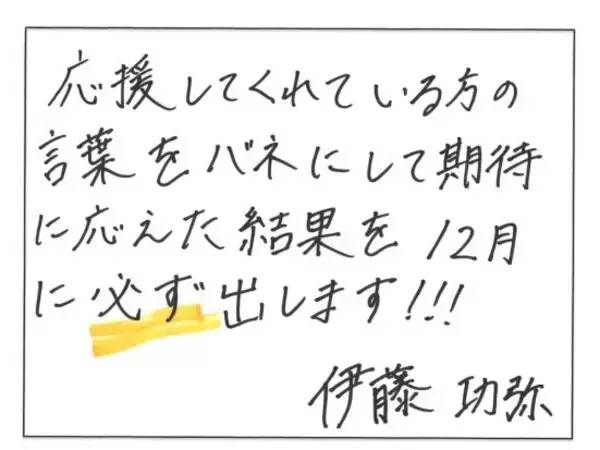 応援してくれている方の
言葉をバネにして期待
に応えた結果を12月
に必ず出します!!!
伊藤 功弥